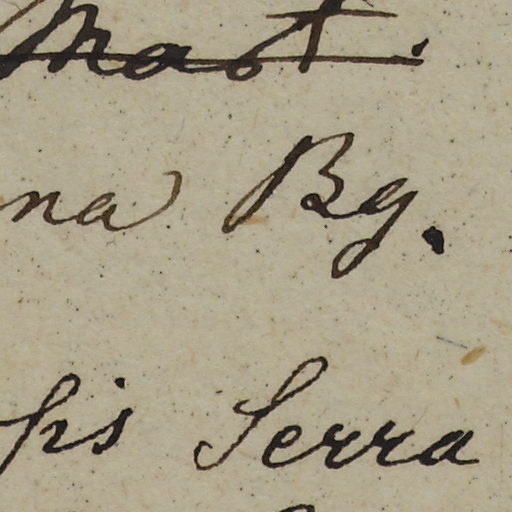 Mast.
na Bg.
sis Serra